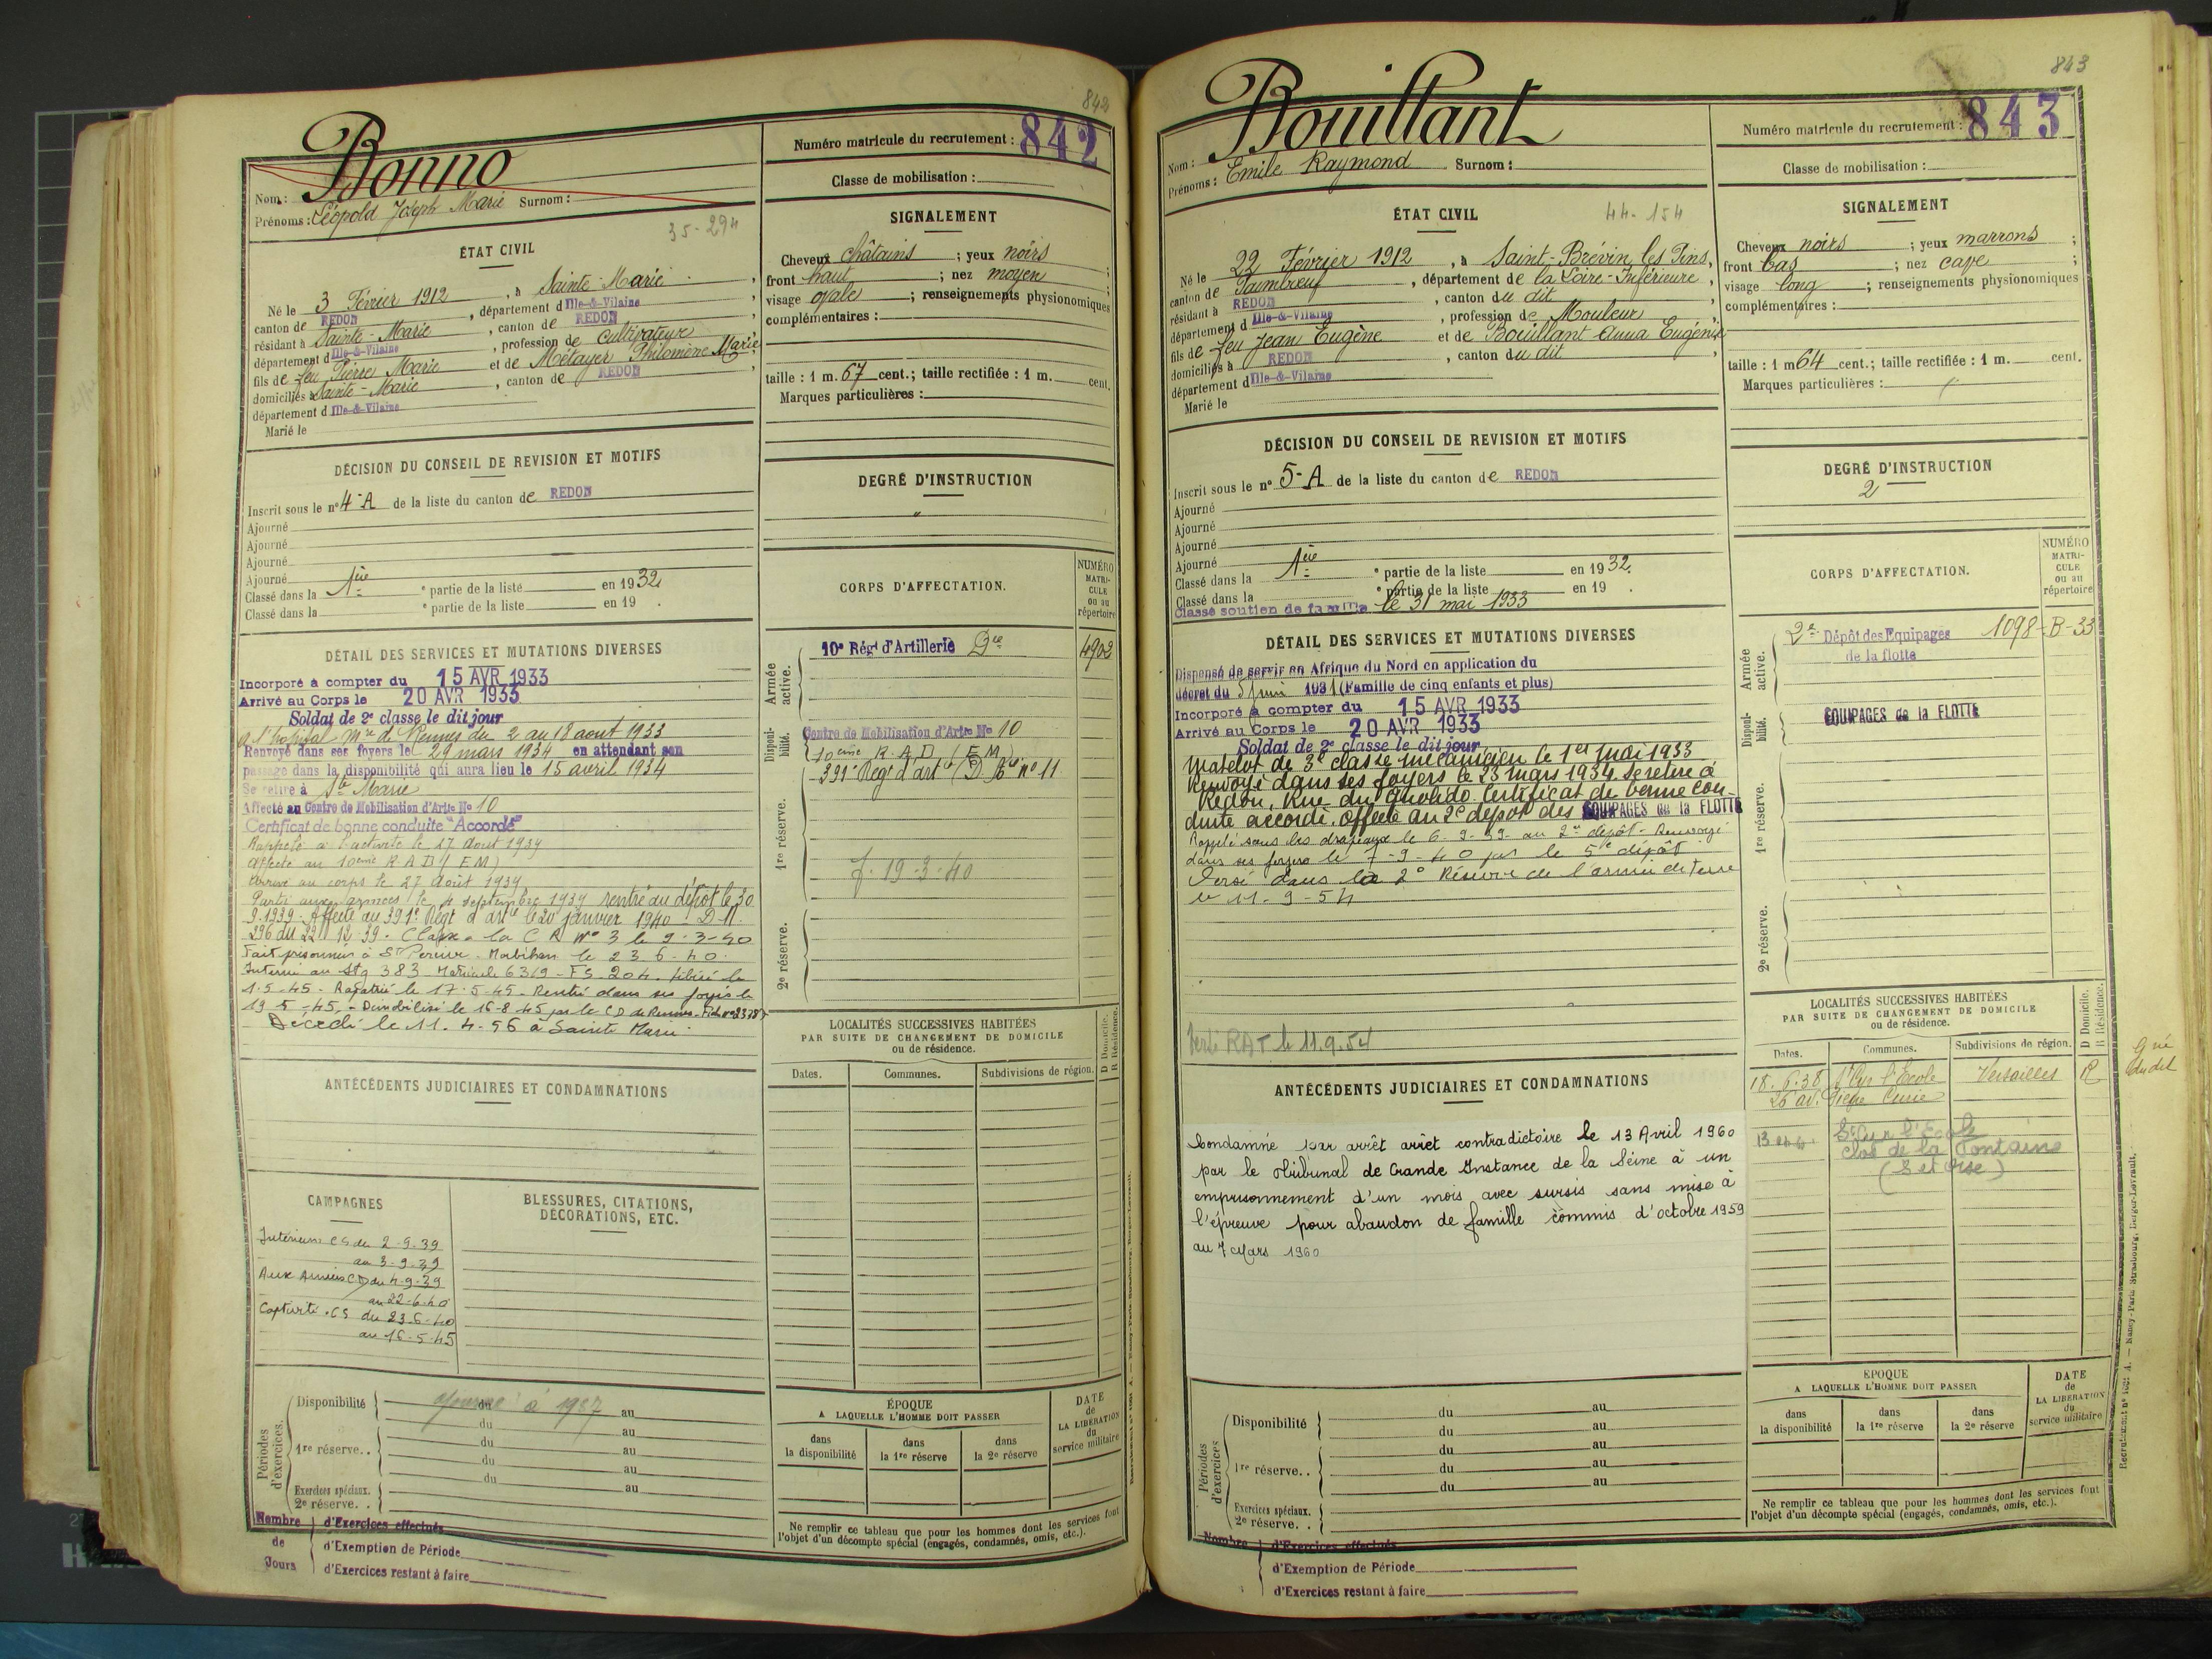 842
Bonno
Nom :
Prénoms : Léopold Joseph Marie Surnom :
Numéro matricule du recrutement : 842
Classe de mobilisation :
35-294
ÉTAT CIVIL
Né le 3 Février 1912, à Sainte-Marie,
canton de REDON, département d'Ille-&-Vilaine,
résidant à Sainte-Marie, canton de REDON,
département d'Ille-&-Vilaine, profession de cultivateur
fils de feu Pierre Marie et de Métayer Philomène Marie
domiciliés à Sainte-Marie, canton de REDON,
département d'Ille-&-Vilaine
Marié le
SIGNALEMENT
Cheveux châtains ; yeux noirs ;
front haut ; nez moyen ;
visage ovale ; renseignements physionomiques
complémentaires :
taille : 1 m. 67 cent.; taille rectifiée : 1 m. cent.
Marques particulières :
DÉCISION DU CONSEIL DE REVISION ET MOTIFS
Inscrit sous le n° 4-A de la liste du canton de REDON
Ajourné
Ajourné
Ajourné
Ajourné
Classé dans la 1ère partie de la liste en 1932
Classé dans la e partie de la liste en 19 .
DEGRÉ D'INSTRUCTION
"
DÉTAIL DES SERVICES ET MUTATIONS DIVERSES
Incorporé à compter du 15 AVR 1933
Arrivé au Corps le 20 AVR 1933
Soldat de 2e classe le dit jour
à l'hopital Mre de Rennes du 2 au 18 aout 1933
Renvoyé dans ses foyers le 29 mars 1934 en attendant son
passage dans la disponibilité qui aura lieu le 15 avril 1934
Se retire à Ste Marie
Affecté au Centre de Mobilisation d'Artie No 10
Certificat de bonne conduite "Accordé"
Rappelé à l'activité le 27 Aout 1939
affecté au 10ème R A D (E M)
Arrivé au corps le 27 Août 1939
Partis aux armées le 4 septembre 1939 rentré au dépôt le 30
9.1939. Affecté au 391e Régt d'artie le 20 janvier 1940. D.M.
296 du 22 12 39. Classé à la C R No 3 le 9-3-40
Fait prisonnier à St Perreux Morbihan le 23 6-40.
Interné au Stg 383 Matricule 6319-FS 204. Libéré le
1-5-45 - Rapatrié le 17-5-45 - Rentré dans ses foyers le
19 5-45. - Démobilisé le 16-8-45 par le CD de Rennes - Fiche no
Décédé le 11-4-56 à Sainte Marie
CORPS D'AFFECTATION.
NUMÉRO MATRI-CULE ou au répertoire
Armée active.
10e Régt d'Artillerie Dre 4902
Disponi-bilité.
Centre de Mobilisation d'Artie No 10
10ème R.A.D (E M)
391e Régt d'artie (D) Bie no 11
1re réserve.
f. 19-3-40
2e réserve.
ANTÉCÉDENTS JUDICIAIRES ET CONDAMNATIONS
CAMPAGNES
Intérieur CS du 2-9-39
au 3-9-39
Aux Armées CD du 4-9-39
au 22-6-40
Captivité CS du 23-6-40
au 16-5-45
BLESSURES, CITATIONS, DÉCORATIONS, ETC.
LOCALITÉS SUCCESSIVES HABITÉES
PAR SUITE DE CHANGEMENT DE DOMICILE
ou de résidence.
D Domicile. R Résidence.
Dates. Communes. Subdivisions de région.
Périodes d'exercices.
Disponibilité du à 1937 au
du au
1re réserve. . du au
du au
du au
Exercices spéciaux.
2e réserve. .
ÉPOQUE
A LAQUELLE L'HOMME DOIT PASSER
dans la disponibilité
dans la 1re réserve
dans la 2e réserve
DATE de LA LIBÉRATION du service militaire
Ne remplir ce tableau que pour les hommes dont les services font
l'objet d'un décompte spécial (engagés, condamnés, omis, etc.).
Nombre de Jours
d'Exercices effectués
d'Exemption de Période
d'Exercices restant à faire
843
Bouillant
Nom :
Prénoms : Emile Raymond Surnom :
Numéro matricule du recrutement : 843
Classe de mobilisation :
44-154
ÉTAT CIVIL
Né le 22 Février 1912, à Saint-Brévin les Pins,
canton de Paimbœuf, département de la Loire-Inférieure,
résidant à REDON, canton du dit,
département d'Ille-&-Vilaine, profession de Mouleur
fils de feu Jean Eugène et de Bouillant Anna Eugénie
domiciliés à REDON, canton du dit,
département d'Ille-&-Vilaine
Marié le
SIGNALEMENT
Cheveux noirs ; yeux marrons ;
front bas ; nez cave ;
visage long ; renseignements physionomiques
complémentaires :
taille : 1 m 64 cent.; taille rectifiée : 1 m. cent.
Marques particulières :
DÉCISION DU CONSEIL DE REVISION ET MOTIFS
Inscrit sous le n° 5-A de la liste du canton de REDON
Ajourné
Ajourné
Ajourné
Ajourné
Classé dans la 1ère partie de la liste en 1932.
Classé dans la e partie de la liste en 19 .
Classé soutien de famille le 31 mai 1933
DEGRÉ D'INSTRUCTION
2
DÉTAIL DES SERVICES ET MUTATIONS DIVERSES
Dispensé de servir en Afrique du Nord en application du
décret du 5 juin 1931 (Famille de cinq enfants et plus)
Incorporé à compter du 15 AVR 1933
Arrivé au Corps le 20 AVR 1933
Soldat de 2e classe le dit jour
Matelot de 3e classe mécanicien le 1er Mai 1933
Renvoyé dans ses foyers le 23 mars 1934. Se retire à
Redon, Rue du . Certificat de bonne con-
duite accordé. Affecté au 2e dépôt des EQUIPAGES de la FLOTTE
Rappelé sous les drapeaux le 6-9-39 au 2e dépôt - Renvoyé
dans ses foyers le 7-9-40 par le 5e dépôt
Versé dans la 2e Réserve de l'armée de terre
le 11-9-54
Versé RAT le 11.9.54
CORPS D'AFFECTATION.
NUMÉRO MATRI-CULE ou au répertoire
Armée active.
2e Dépôt des Equipages 1098-B-33
de la flotte
Disponi-bilité.
EQUIPAGES de la FLOTTE
1re réserve.
2e réserve.
ANTÉCÉDENTS JUDICIAIRES ET CONDAMNATIONS
Condamné par arrêt arrêt contradictoire le 13 Avril 1960
par le Tribunal de Grande Instance de la Seine à un
emprisonnement d'un mois avec sursis sans mise à
l'épreuve pour abandon de famille commis d'octobre 1959
au 7 Mars 1960
LOCALITÉS SUCCESSIVES HABITÉES
PAR SUITE DE CHANGEMENT DE DOMICILE
ou de résidence.
D Domicile. R Résidence.
Dates. Communes. Subdivisions de région.
18.6.38 St Cyr l'Ecole Versailles R
26 av. Pierre Curie
St Cyr l'Ecole
clos de la Fontaine
(S et Oise)
Périodes d'exercices
Disponibilité du au
du au
1re réserve. . du au
du au
du au
Exercices spéciaux.
2e réserve. .
EPOQUE
A LAQUELLE L'HOMME DOIT PASSER
dans la disponibilité
dans la 1re réserve
dans la 2e réserve
DATE de LA LIBÉRATION du service militaire
Ne remplir ce tableau que pour les hommes dont les services font
l'objet d'un décompte spécial (engagés, condamnés, omis, etc.).
Nombre
d'Exercices effectués
d'Exemption de Période
d'Exercices restant à faire